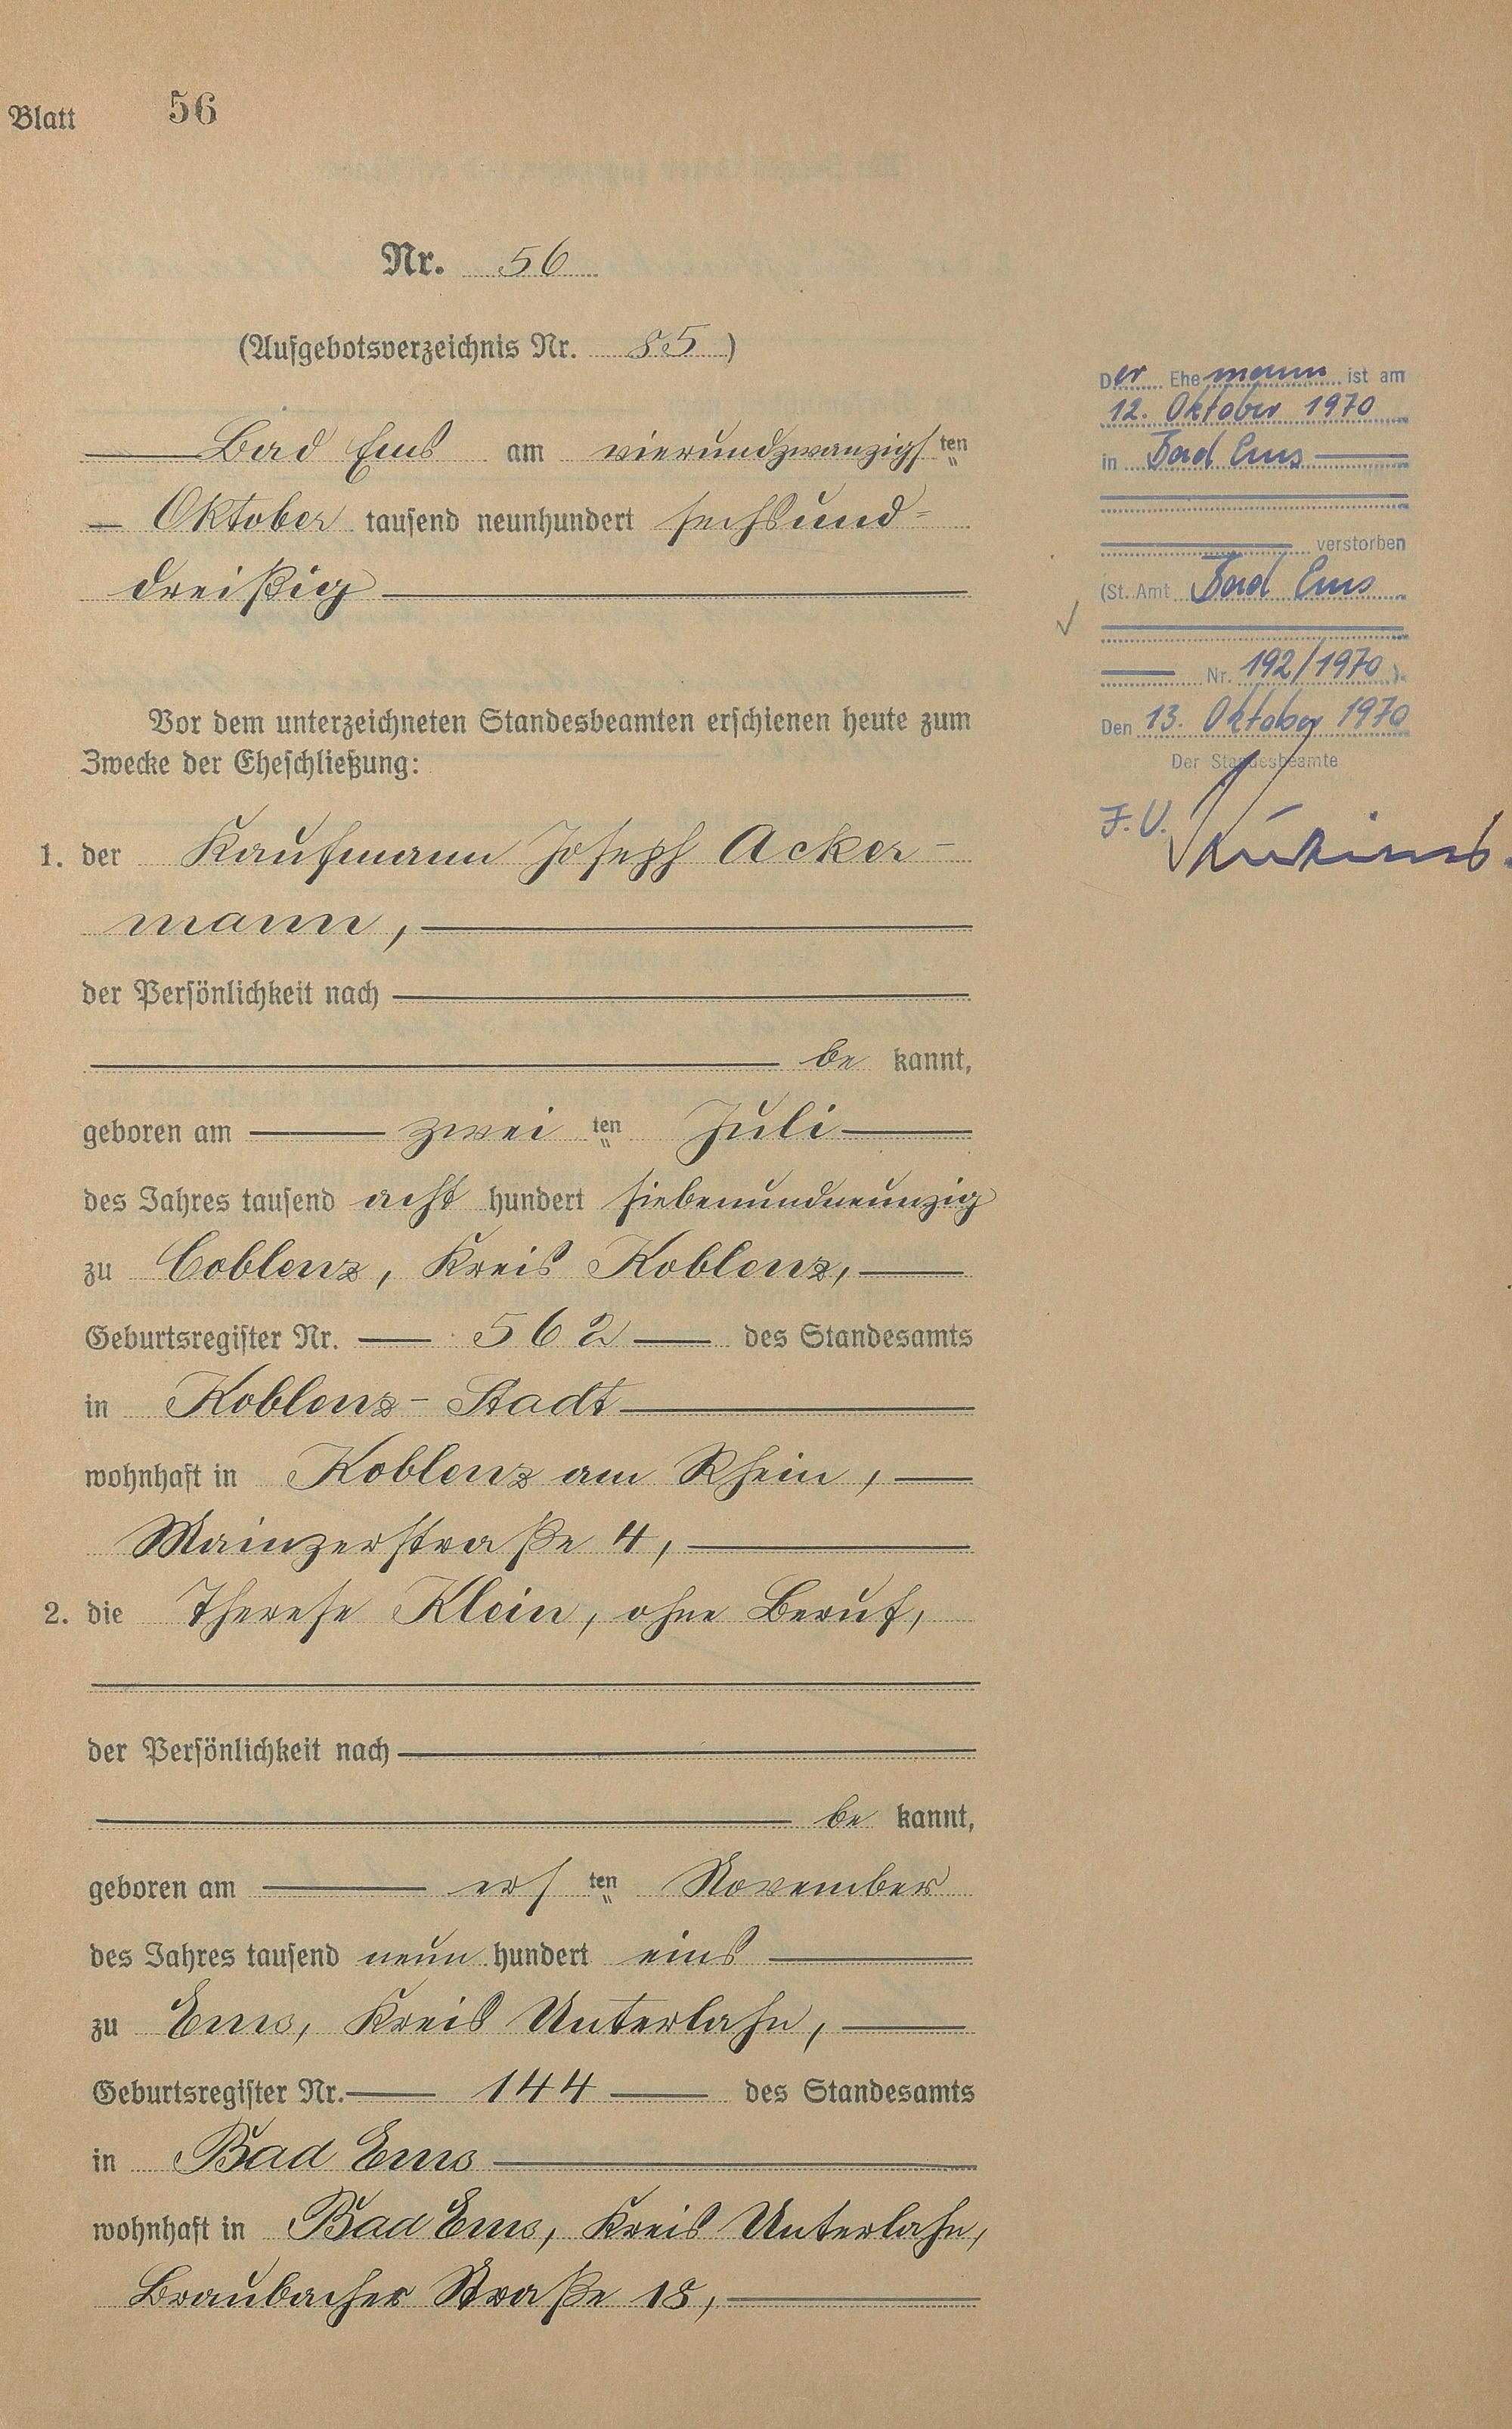 Blatt 56
Nr. 56
(Aufgebotsverzeichnis Nr. 85)
Bad Ems am vierundzwanzigsten
Oktober tausend neunhundert sechsund-
dreißig
Vor dem unterzeichneten Standesbeamten erschienen heute zum
Zwecke der Eheschließung:
1. der Kaufmann Joseph Acker-
mann,
der Persönlichkeit nach
be kannt,
geboren am zwei ten Juli
des Jahres tausend acht hundert siebenundneunzig
zu Coblenz, Kreis Koblenz,
Geburtsregister Nr. 562 des Standesamts
in Koblenz-Stadt
wohnhaft in Koblenz am Rhein,
Mainzerstraße 4,
2. die Therese Klein, ohne Beruf,
der Persönlichkeit nach
be kannt,
geboren am ers ten November
des Jahres tausend neun hundert eins
zu Ems, Kreis Unterlahn,
Geburtsregister Nr. 144 des Standesamts
in Bad Ems
wohnhaft in Bad Ems, Kreis Unterlahn,
Braubacher Straße 18,
Der Ehemann ist am
12. Oktober 1970
in Bad Ems
verstorben
(St. Amt Bad Ems
Nr. 192/1970)
Den 13. Oktober 1970
Der Standesbeamte
J.V.